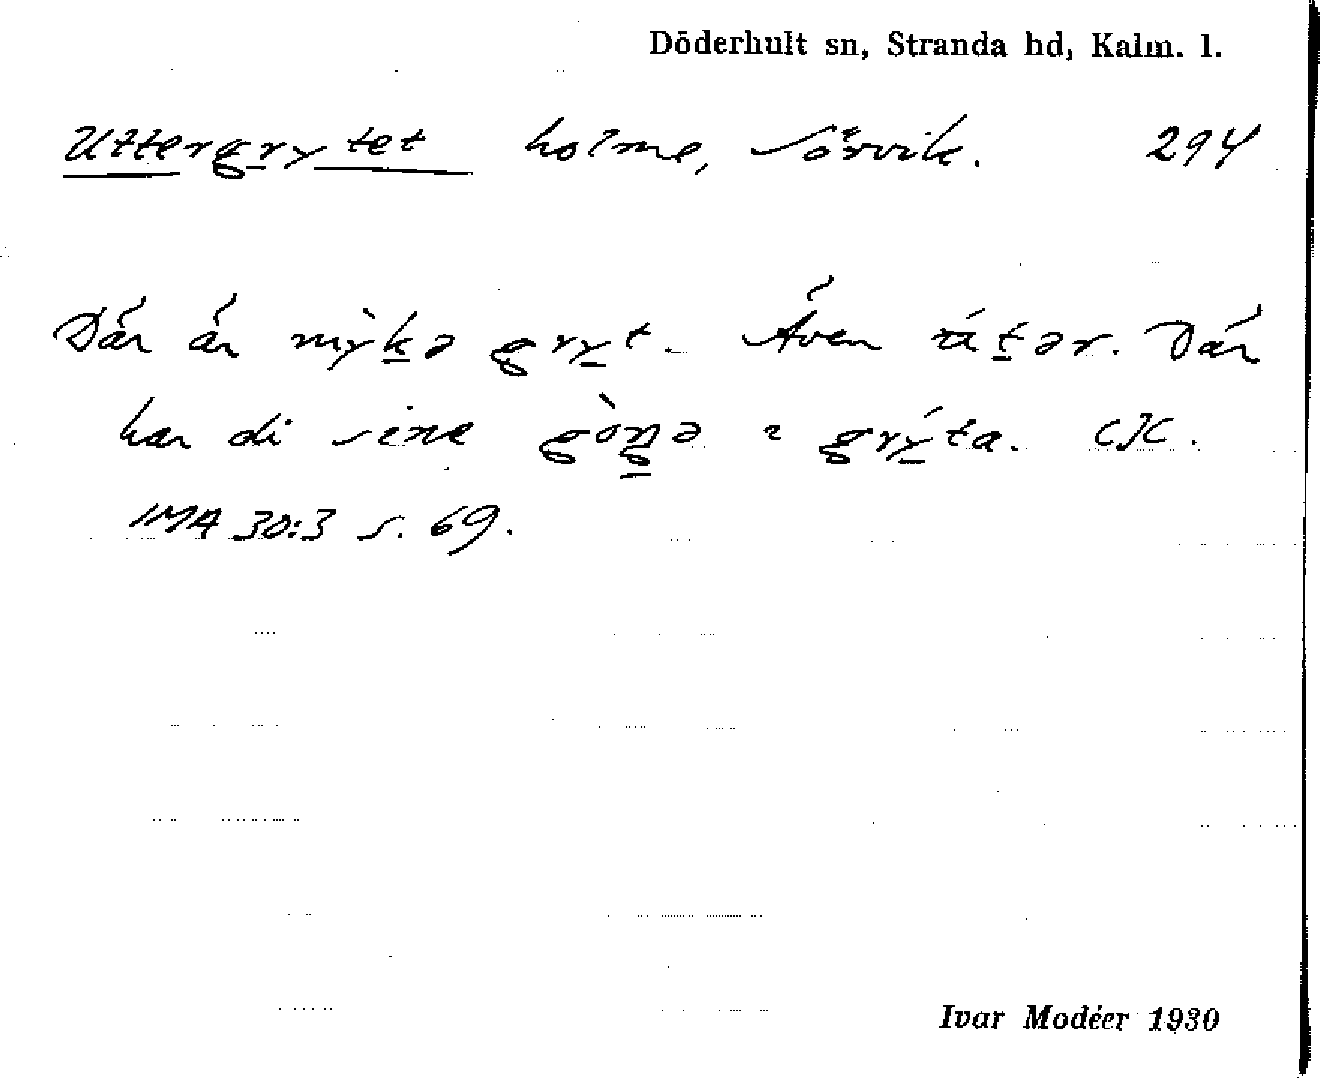 Döderhult sn, Stranda hd, Kalm. l.
Uttergrytet holme, Sörvik. 294
Där är mỳkə gryt. Även
Där
har di sine gòŋə i grýta. CJC.
IMA 30:3 s. 69.
Ivar Modéer 1930